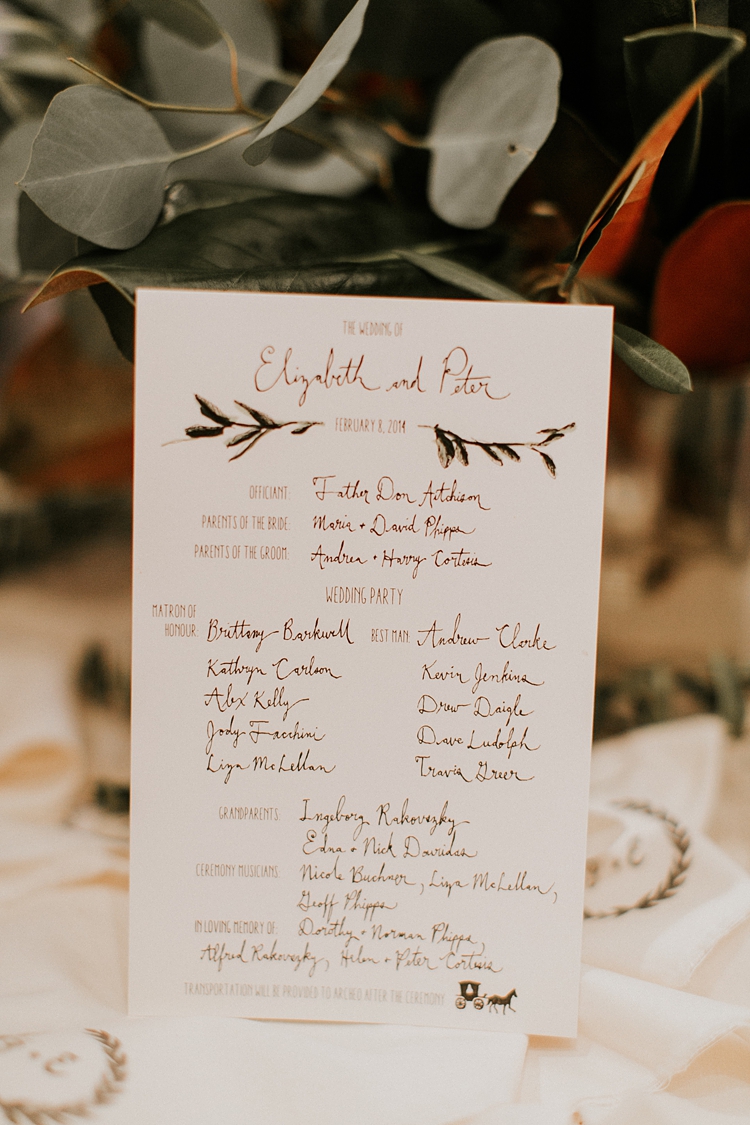 THE WEDDING OF
Elizabeth and Peter
FEBRUARY 8, 2014
OFFICIANT: Father Don Aitchison
PARENTS OF THE BRIDE: Maria + David Phipps
PARENTS OF THE GROOM: Andrea + Harry Cortesis
WEDDING PARTY
MATRON OF HONOUR: Brittany Barkwell
BEST MAN: Andrew Clarke
Kathryn Carlson
Kevin Jenkins
Alex Kelly
Drew Daigle
Jody Facchini
Dave Ludolph
Liza McLellan
Travis Greer
GRANDPARENTS: Ingeborg Rakovszky
Edna + Nick Davidas
CEREMONY MUSICIANS: Nicole Buchner, Liza McLellan,
Geoff Phipps
IN LOVING MEMORY OF: Dorothy + Norman Phipps,
Alfred Rakovszky, Helen + Peter Cortesis
TRANSPORTATION WILL BE PROVIDED TO ARCHEO AFTER THE CEREMONY